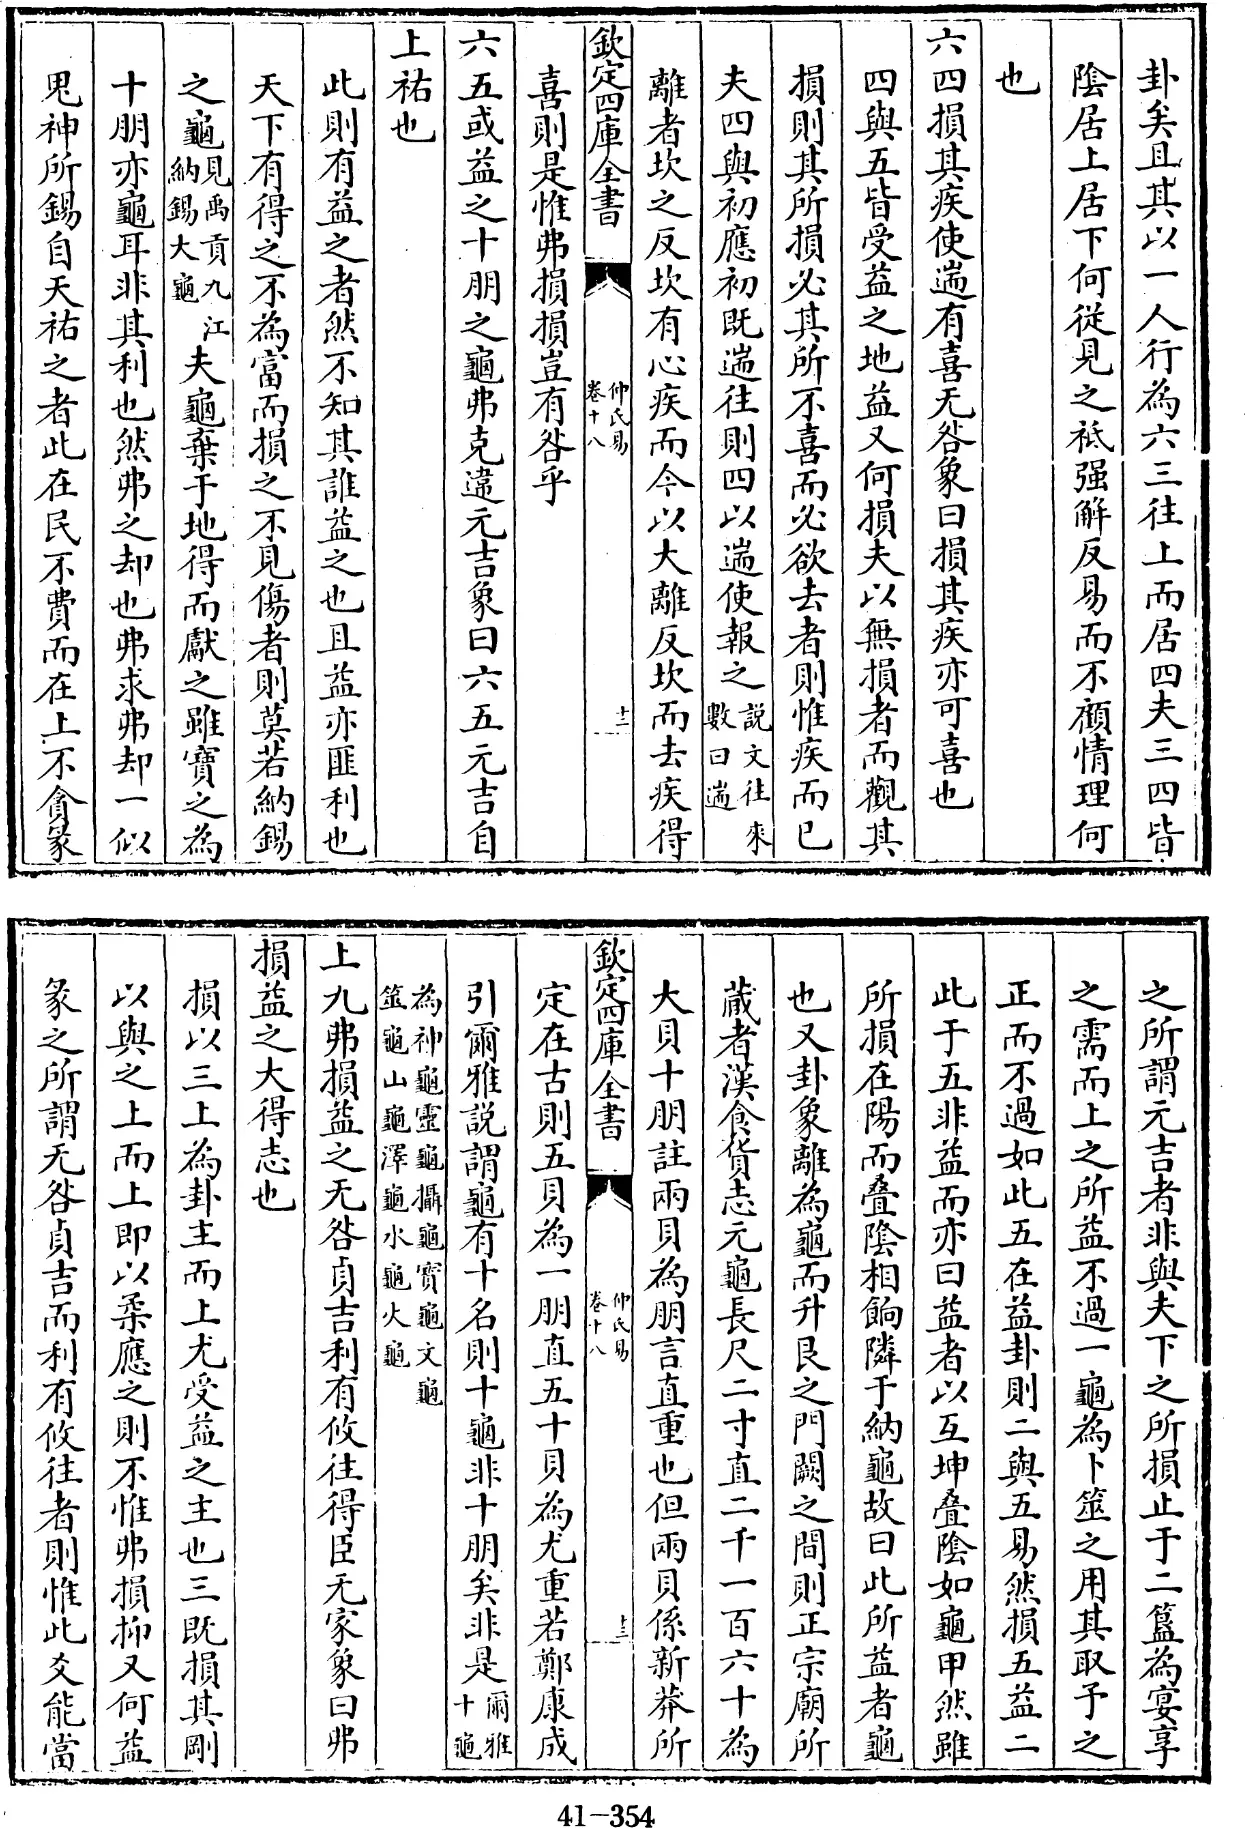 卦矣且其以一人行為六三往上而居四夫三四皆
陰居上居下何從見之祗强解反易而不顧情理何
也
六四損其疾使遄有喜无咎象曰損其疾亦可喜也
四與五皆受益之地益又何損夫以無損者而觀其
損則其所損必其所不喜而必欲去者則惟疾而已
夫四與初應初既遄往則四以遄使報之説文往來數曰遄
離者坎之反坎有心疾而今以大離反坎而去疾得
欽定四庫全書
仲氏易
卷十八
十二
喜則是惟弗損損豈有咎乎
六五或益之十朋之龜弗克違元吉象曰六五元吉自
上祐也
此則有益之者然不知其誰益之也且益亦匪利也
天下有得之不為富而損之不見傷者則莫若納錫
之龜見禹貢九江納錫大龜夫龜棄于地得而獻之雖寶之為
十朋亦龜耳非其利也然弗之却也弗求弗却一似
鬼神所錫自天祐之者此在民不費而在上不貪彖
之所謂元吉者非與夫下之所損止于二簋為宴享
之需而上之所益不過一龜為卜筮之用其取予之
正而不過如此五在益卦則二與五易然損五益二
此于五非益而亦曰益者以互坤叠陰如龜甲然雖
所損在陽而叠陰相餉隣于納龜故曰此所益者龜
也又卦象離為龜而升艮之門闕之間則正宗廟所
蔵者漢食貨志元龜長尺二寸直二千一百六十為
大貝十朋註兩貝為朋言直重也但兩貝係新莽所
欽定四庫全書
仲氏易
卷十八
十三
定在古則五貝為一朋直五十貝為尤重若鄭康成
引爾雅説謂龜有十名則十龜非十朋矣非是爾雅十龜
為神龜靈龜攝龜寳龜文龜筮龜山龜澤龜水龜火龜
上九弗損益之无咎貞吉利有攸往得臣无家象曰弗
損益之大得志也
損以三上為卦主而上尤受益之主也三既損其剛
以與之上而上即以柔應之則不惟弗損抑又何益
彖之所謂无咎貞吉而利有攸往者則惟此爻能當
41-354